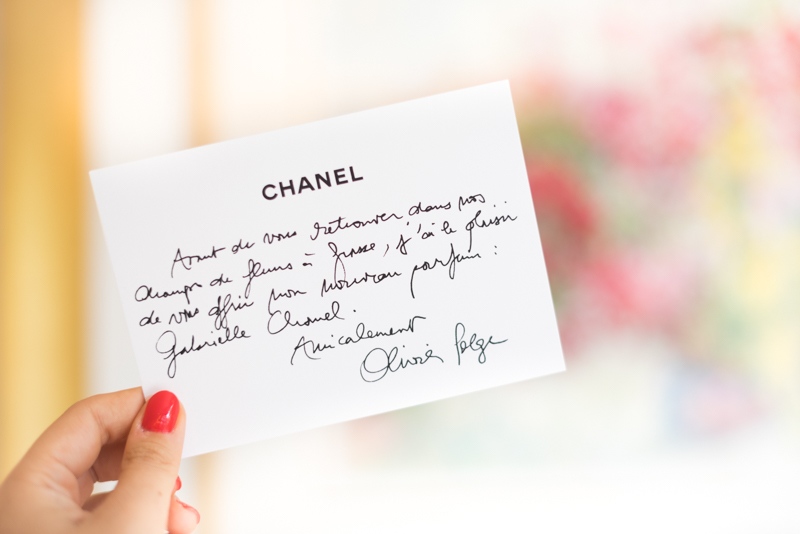 CHANEL
Avant de vous retrouver dans nos
champs de fleurs à Grasse, j'ai le plaisir
de vous offrir mon nouveau parfum :
Gabrielle Chanel.
Amicalement
Olivier Polge